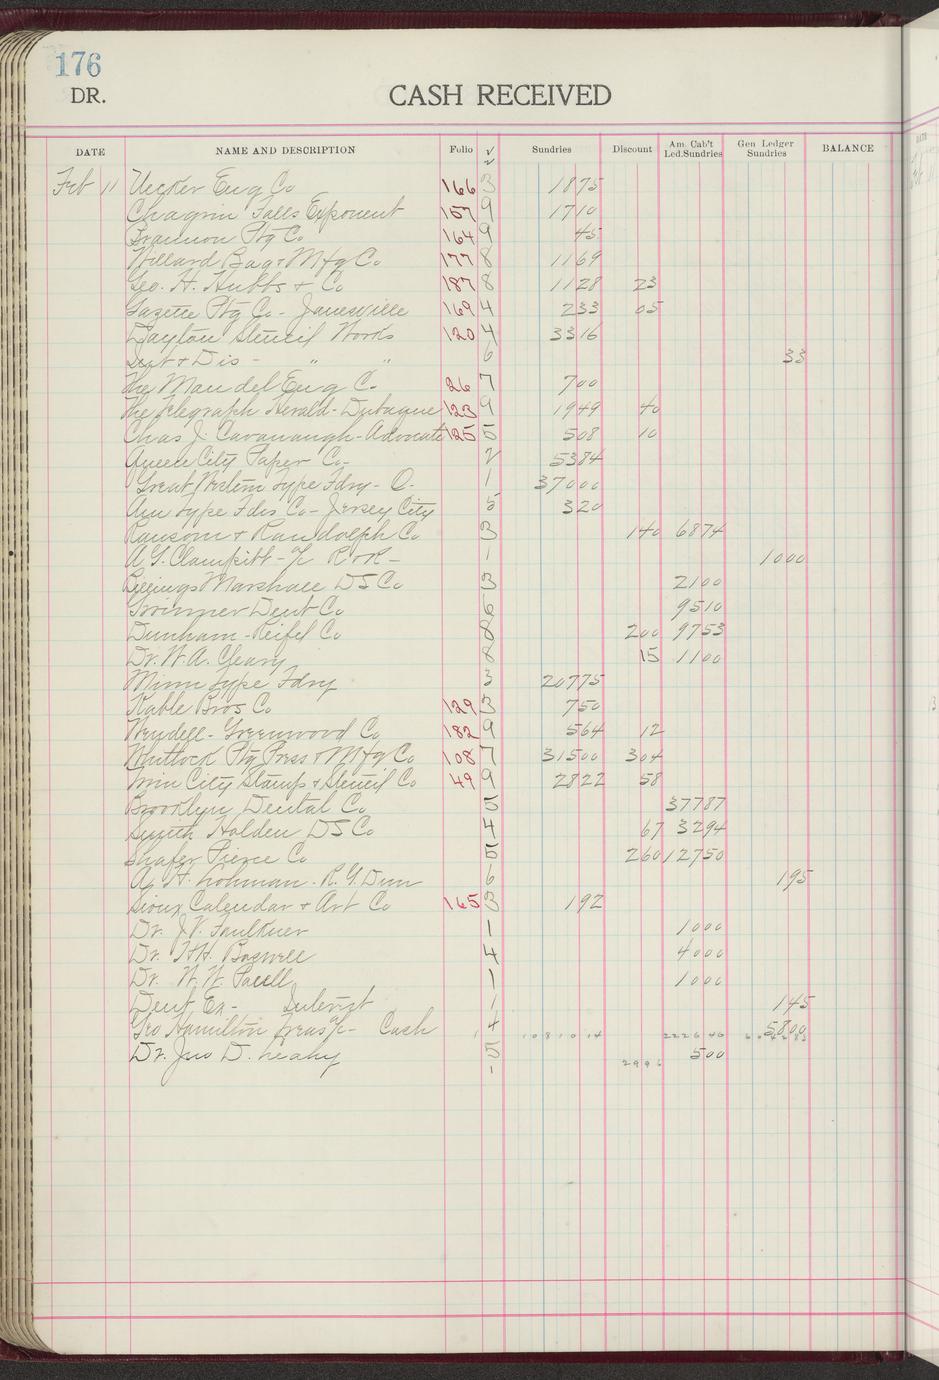 176
DR. CASH RECEIVED
DATE NAME AND DESCRIPTION Folio √ Sundries Discount Am. Cab't Led.Sundries Gen Ledger Sundries BALANCE
Feb 11 Uecker Eng Co 166 3 1875
Chagrin Falls Exponent 157 9 1710
Brannon Ptg Co 164 9 45
Willard Bag & Mfg Co 177 8 1169
Geo. H. Hubbs & Co 187 8 1128 23
Gazette Ptg Co - Janesville 169 4 233 05
Dayton Stencil Works 120 4 3316
Int & Dis - " " 6 33
The Mandel Eng C. 26 7 700
The Telegraph Herald - Dubuque 123 9 1949 40
Chas J. Cavanaugh - Advocate 125 5 508 10
Queen City Paper Co - 2 5384
Great Western Type Fdry - O. 1 37000
Am Type Fdrs Co - Jersey City 5 320
Ransom & Randolph Co 3 140 6874
A G. Clampitt - R - 1 1000
Billings Marshall D S Co 3 2100
Dent Co 6 9510
Dunham - Reifel Co 8 200 9753
Dr. W. A. Cleary 8 15 1100
Minn Type Fdry 3 20775
Kable Bros Co 129 3 750
Wendell - Greenwood Co 182 9 564 12
Whitlock Ptg Press & Mfg Co 108 7 31500 304
Twin City Stamp & Stencil Co 49 9 2822 58
Brooklyn Dental Co 5 37787
Smith Holden D S Co 4 67 3294
Shafer Pierce Co 5 260 12750
A. H. Lohman - R. G. Dun 6 195
Sioux Calendar & Art Co 165 3 192
Dr. J. V. Faulkner 1 1000
Dr. H. Boswell 4 4000
Dr. W. W. 1 1000
Dent Ex - Interest 1 145
Geo Hamilton Treas - Cash 4 5800
1 108 10 14 2226 46
Dr. Jno D. Leahy 5 500
1 2996